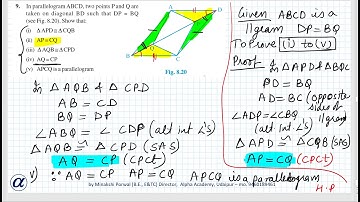 9. In parallelogram ABCD, two points P and Q are
taken on diagonal BD such that DP = BQ
(see Fig. 8.20). Show that:
(i) Δ APD ≅ Δ CQB
(ii) AP = CQ
(iii) Δ AQB ≅ Δ CPD
(iv) AQ = CP
(v) APCQ is a parallelogram
Fig. 8.20
In Δ AQB & Δ CPD
AB = CD
BQ = DP
∠ABQ = ∠CDP (alt int ∠s)
Δ AQB ≅ Δ CPD (SAS)
AQ = CP (CPCT)
v) ∵ AQ = CP AP = CQ APCQ is a parallelogram
H.P
Given ABCD is a
||gram DP = BQ
To prove (i) to (v)
Proof
In Δ APD & Δ BQC
PD = BQ
AD = BC (opposite
sides of
||gram
∠ADP = ∠CBQ
(alt int ∠s)
Δ APD ≅ Δ CQB (SAS)
AP = CQ (CPCT)
by Minakshi Porwal (B.E., E&TC) Director, Alpha Academy, Udaipur